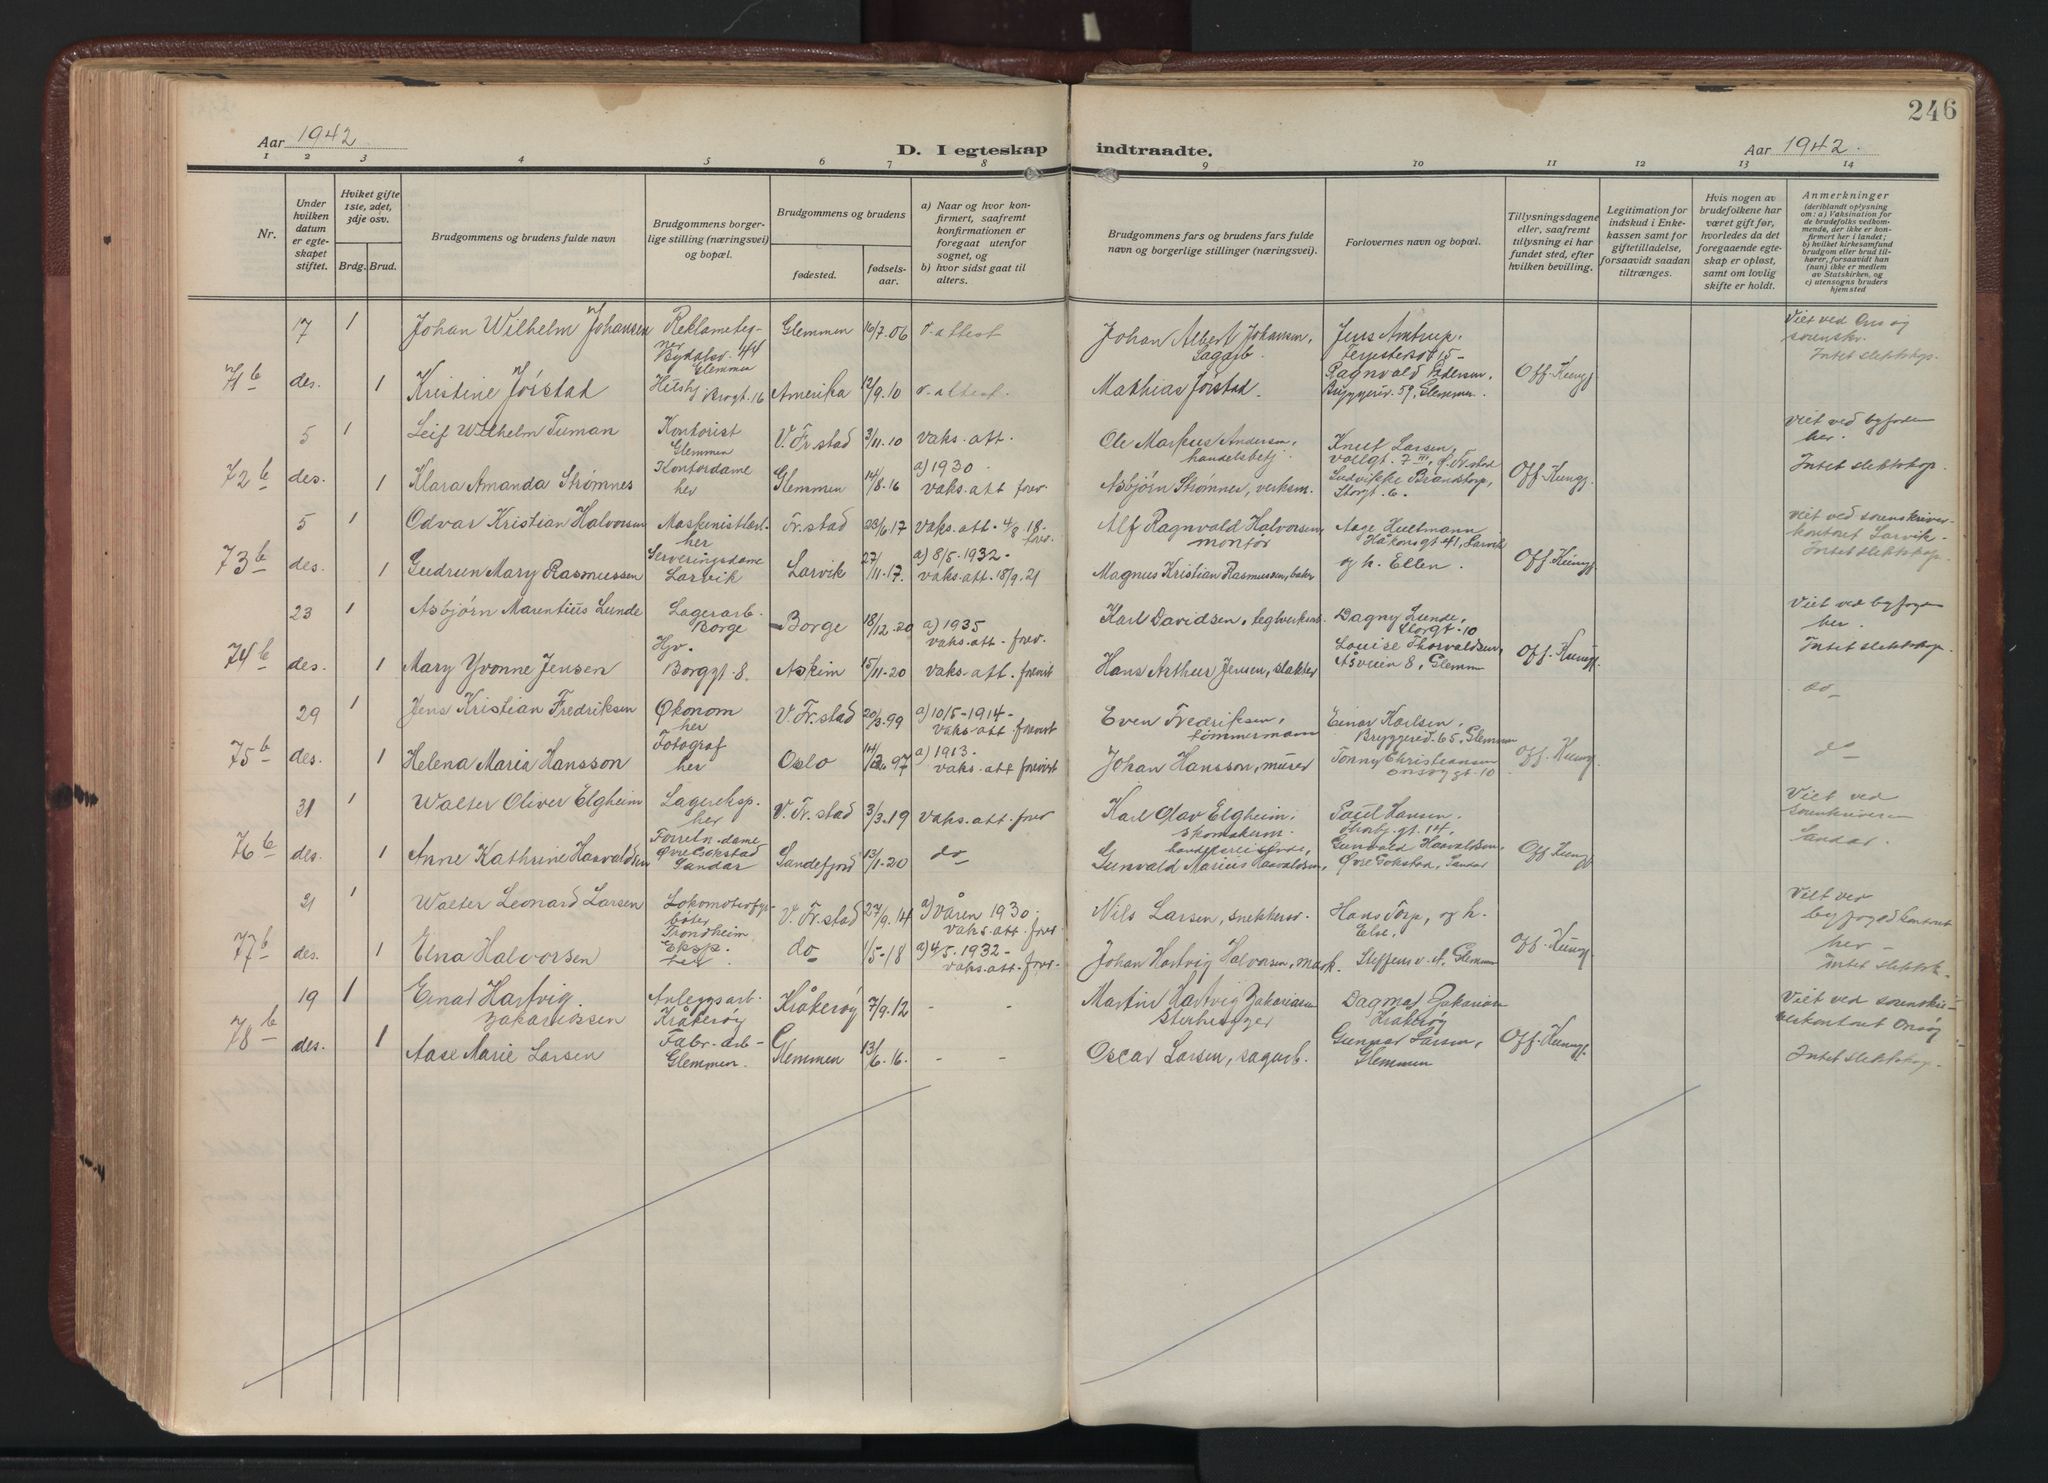 246
Aar 1942
D. I egteskap indtraadte.
Aar 1942.
1 2 3 4 5 6 7 8 9 10 11 12 13 14
Nr.
Under hvilken datum er egteskapet stiftet.
Hviket gifte 1ste, 2det, 3dje osv.
Brdg. Brud.
Brudgommens og brudens fulde navn
Brudgommens borgerlige stilling (næringsvei) og bopæl.
Brudgommens og brudens
fødested.
fødselsaar.
a) Naar og hvor konfirmert, saafremt konfirmationen er foregaat utenfor sognet, og
b) hvor sidst gaat til alters.
Brudgommens fars og brudens fars fulde navn og borgerlige stillinger (næringsvei).
Forlovernes navn og bopæl.
Tillysningsdagene eller, saafremt tillysning ei har fundet sted, efter hvilken bevilling.
Legitimation for indskud i Enkekassen samt for giftetilladelse, forsaavidt saadan tiltrænges.
Hvis nogen av brudefolkene har været gift før, hvorledes da det foregaaende egteskap er opløst, samt om lovlig skifte er holdt.
Anmerkninger
(deriblandt oplysning om: a) Vaksination for de brudefolks vedkommende, der ikke er konfirmert her i landet; b) hvilket kirkesamfund brudgom eller brud tilhører, forsaavidt han (hun) ikke er medlem av Statskirken, og c) utensogns bruders hjemsted
17 1 Johan Wilhelm Johansen Reklametegner Bydalsv. 44 Glemmen Glemmen 16/7.06 v. attest Johan Albert Johansen, Sagarb. Jens Amtrup, 15 Viet ved Onsøy sorenskr. Intet slektskap.
71b des. 1 Kristine Jørstad Brogt. 16 Amerika 12/9.10 v. attest. Mathias Jørstad Ragnvald Pedersen, Bryggeriv. 59, Glemmen. Off. Kungj.
5 1 Leif Wilhelm Tuman Kontorist Glemmen V. Fr.stad 3/11.10 vaks. att. Ole Markus Andersen, handelsbetj. Knut Larsen, Vollgt. 7 III, Ø. Fr.stad Viet ved byfoden her.
72b des. 1 Klara Amanda Strømnes Kontordame her Glemmen 14/8.16 a) 1930. vaks. att. forev. Asbjørn Strømnes, verksm. Ludvikke Brandstorp, Storgt. 6. Off. Kungj. Intet slektskap.
5 1 Odvar Kristian Halvorsen Maskinistlærl. her Fr.stad 23/6.17 vaks. att. 4/8.18. forev. Alf Ragnvald Halvorsen, montør Aage Hultmann Håkonsgt 41, Larvik Viet ved sorenskriverkontoret Larvik. Intet slektskap.
73b des. 1 Gudrun Mary Rasmussen Serveringsdame Larvik Larvik 27/11.17. a) 8/5.1932. vaks. att. 18/9.21 Magnus Kristian Rasmussen, baker og h. Ellen. Off. Kungj.
23 1 Asbjørn Marentius Lunde Lagerarb. Borge Borge 18/12.20 a) 1935 vaks. att. forev. Karl Davidsen, teglverksarb. Dagny Lunde, Storgt. 10 Viet ved byfogden her.
74b des. 1 Mary Yvonne Jensen Hjv. Borggt 8. Askim 15/11.20 vaks. att. forevist Hans Arthur Jensen, slakter Louise Thorvaldsen, Åsveien 8, Glemmen Off. Kungj. Intet slektskap
29 1 Jens Kristian Fredriksen Økonom her V. Fr.stad 20/3.99 a) 10/5-1914- vaks. att. forevist Even Fredriksen, tømmermann Einar Karlsen, Bryggerid. 65, Glemmen do
75b des. 1 Helena Maria Hansson Fotograf her Oslo 97 a) 1913. vaks. att forevist Johan Hansson, murer Tonny Christiansen Onsøygt. 10 Off. Kungj. do
31 1 Walter Oliver Elgheim Lagereksp. her V. Fr.stad 3/3.19 vaks. att. forev Karl Olav Elgheim, skomakerm. Paul Hansen, gt. 14, Viet ved sorenskriveren Sandar.
76b des. 1 Anne Kathrine Haavaldsen Forretn. dame Øvre Gokstad Sandar Sandefjord 13/1.20 do handelsreisende, Gunvald Marius Haavaldsen, Gunvald Haavaldsen, Øvre Gokstad, Sandar Off. Kungj
21 1 Walter Leonard Larsen Lokomotivfyrbøter Trondheim V. Fr.stad 27/9.14 a) våren 1930. vaks. att. forev. Nils Larsen, snekkersv. Hans Torp, og h. Else. Viet ved byfogedkontoret her
77b des. 1 Elna Halvorsen Eksp. her do 1/5-18 a) 4/5.1932- vaks. att. forev. Johan Hartvig Halvorsen, mask. Steffens v. 1, Glemmen Off. Kungj. intet slektsk.
19 1 Einar Hartvig Zakariassen Anleggsarb. Kråkerøy Kråkerøy 7/9.12 - - Martin Hartvig Zakariassen Dagmar Zakarias Kråkerøy Viet ved sorenskriverkontoret Onsøy
78b des. 1 Aase Marie Larsen Fabr. arb- Glemmen. Glemmen 13/6.16. - - Oscar Larsen, sagarb. Gunnar Larsen, Glemmen Off. Kungj. Intet slektskap.